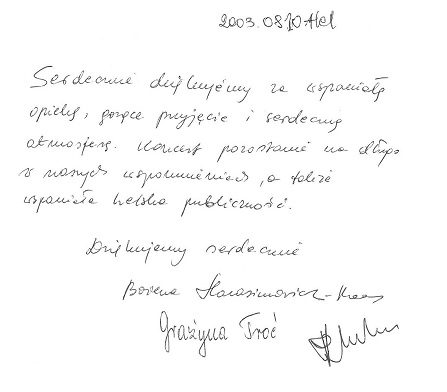 2003.08.10 Hel
Serdecznie dziękujemy za wspaniałą
opiekę, gorące przyjęcie i serdeczną
atmosferę. Koncert pozostanie na długo
w naszych wspomnieniach, a także
wspaniała helska publiczność.
Dziękujemy serdecznie
Bożena Harasimowicz-Haas
Grażyna Troć